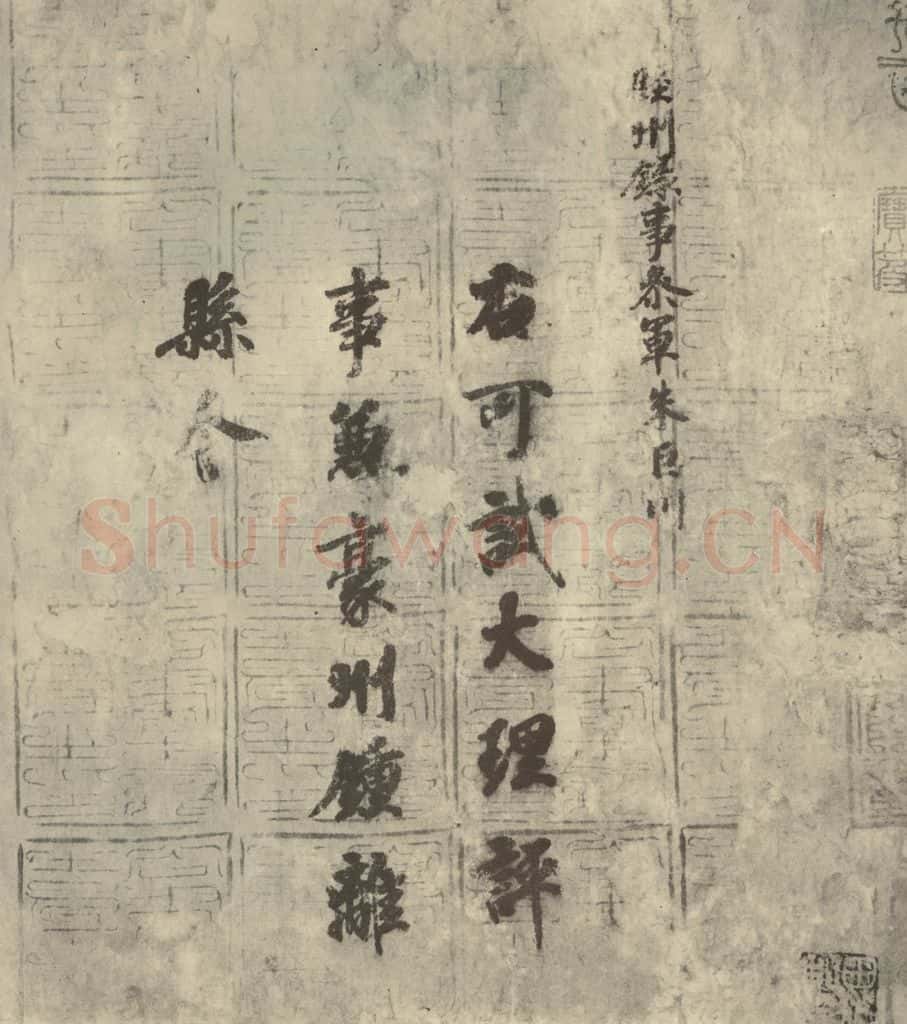 睦州録事叅軍朱巨川
右可試大理評
事兼豪州鍾離
縣令
Shufawang.CN